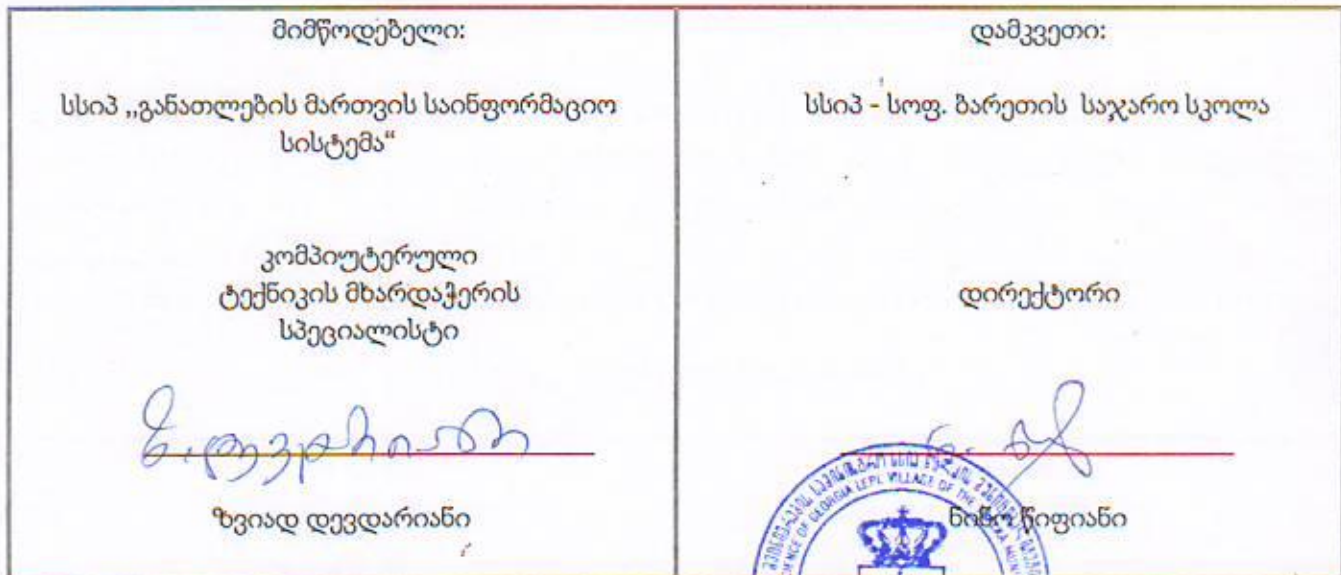 მიმწოდებელი:
სსიპ „განათლების მართვის საინფორმაციო
სისტემა“
კომპიუტერული
ტექნიკის მხარდაჭერის
სპეციალისტი
ზ. დევდარიანი
ზვიად დევდარიანი
დამკვეთი:
სსიპ - სოფ. ბარეთის საჯარო სკოლა
დირექტორი
ნინო წიფიანი
OF GEORGIA LEPL VILLAGE OF THE